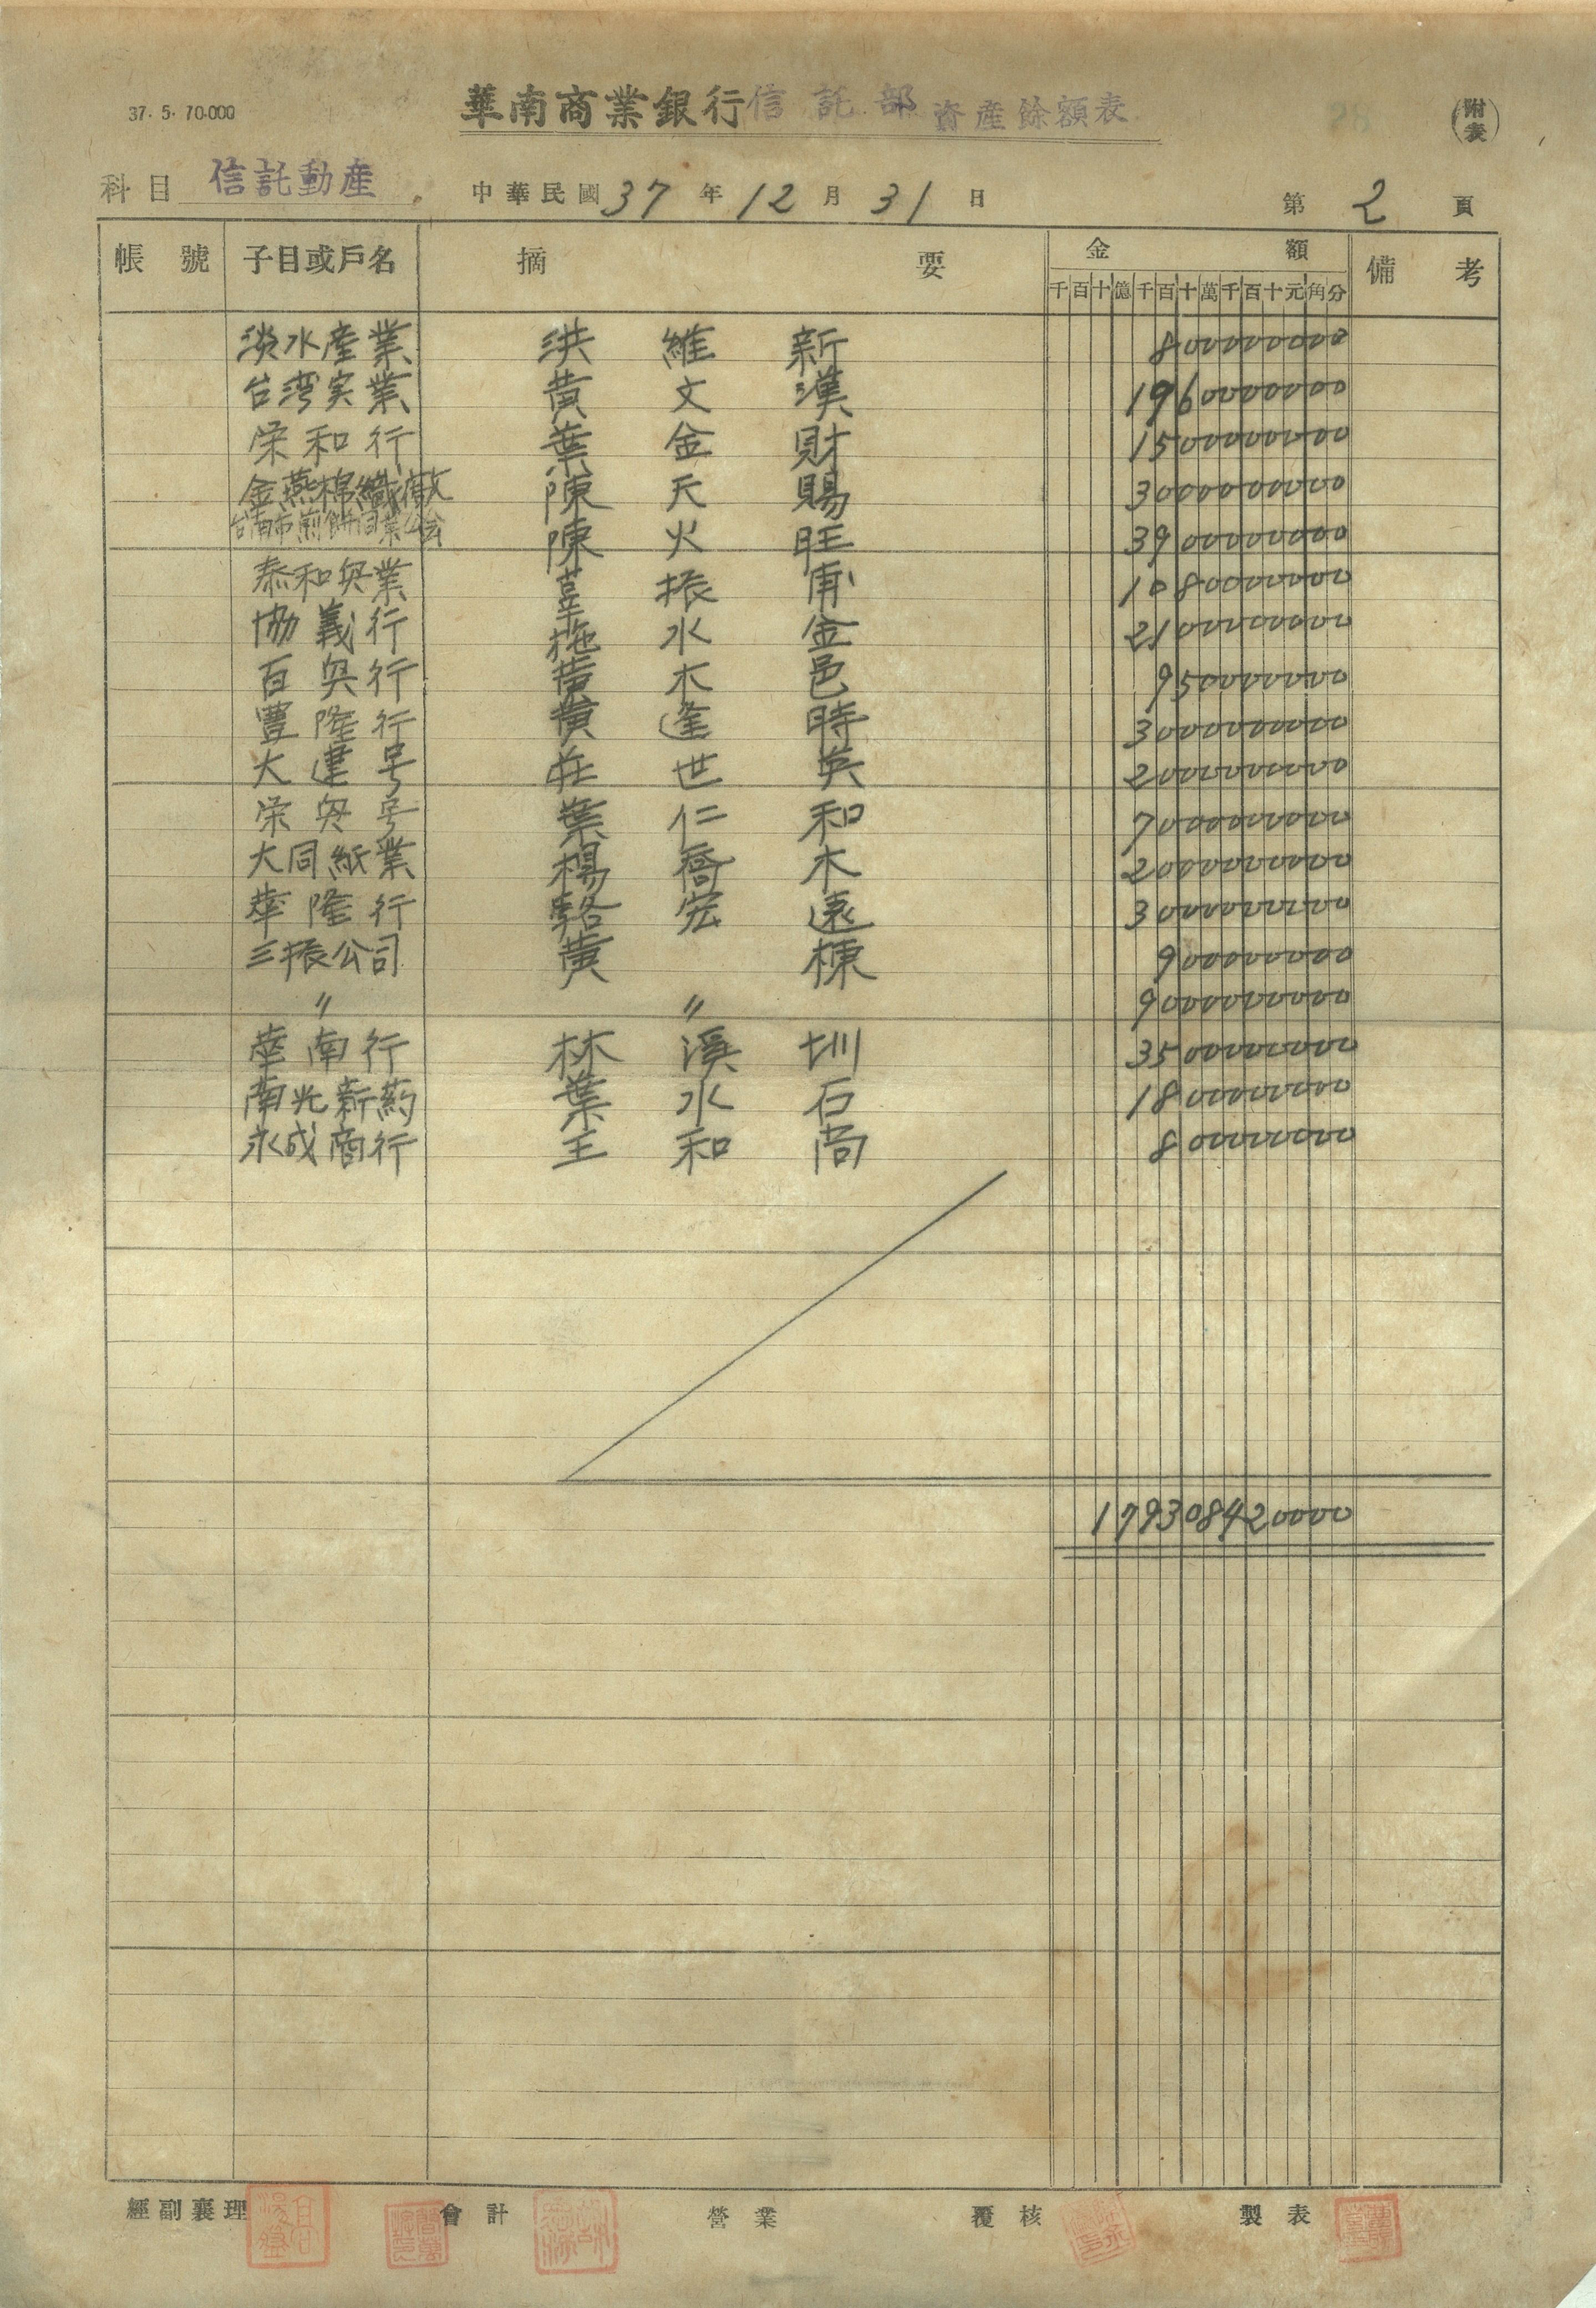 37. 5. 70.000
華南商業銀行信託部資產餘額表
(附表)
科目 信託動產
中華民國37年12月31日
第2頁
帳號 子目或戶名 摘要 金額 備考
千百十億千百十萬千百十元角分
淡水產業 洪維新 800000000
台湾実業 黄文漢 19600000000
栄和行 葉金財 1500000000
金燕棉織廠 陳天賜 3000000000
台南市煎餅同業公会 陳火旺 3900000000
泰和興業 辜振甫 10800000000
協義行 施水金 2100000000
百興行 黄木邑 950000000
豊隆行 黄逢時 3000000000
大建号 莊世英 2000000000
栄興号 葉仁和 7000000000
大同紙業 楊喬木 2000000000
華隆行 駱宏遠 3000000000
三振公司 黄棟 900000000
〃 〃 9000000000
華南行 林溪圳 3500000000
南光新药 葉水石 1800000000
永成商行 王和尚 800000000
179308420000
經副襄理 會計 營業 覆核 製表